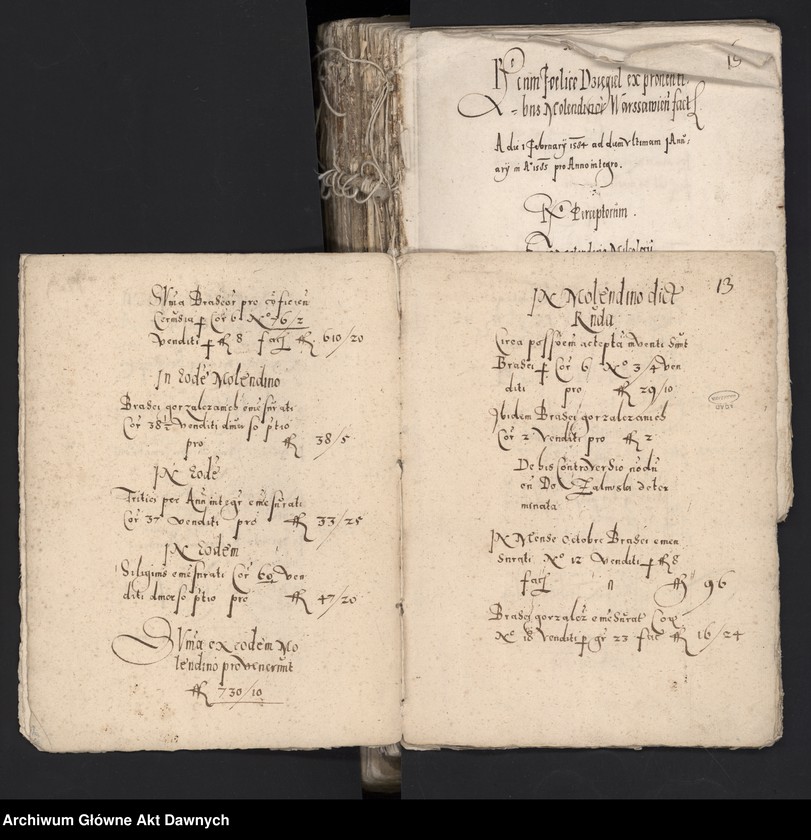 13
Ro cum Foelice Dziegiel ex proventi-
bus Molendinor Warssavien fact
A die 1 February 1584 ad diem vltimam Janu-
ary in Ao 1585 pro Anno integro.
Ro Perceptorum.
Suma Braseor pro coficien
Cervisia p Cor 6 No 76/2
Venditi p ff 8 facit ff 610/20
In Eode Molendino
Brasei gorzalczanich emesurati
Cor 38½ Venditi diverso ptio
pro ff 38/5
IN Eode
Tritici per Annu integr emesurati
Cor 37 Venditi pro ff 33/25
IN Eodem
Siliginis emesurati Cor 60 ven
diti diverso ptio pro ff 47/20
Suma ex eodem Mo
lendino provenerunt
ff 730/10
13
IN Molendino dict
Ruda
Circa possoem accepta inventi sunt
Brasei p Cor 6 No 3/4 Ven
diti pro ff 29/10
Ibidem Brasei gorzalczanich
Cor 2 Venditi pro ff 2
De his Controversio nodu
est Do Zalinsky deter
minata
IN Mense Octobre Brasei emen
surati No 12 Venditi p ff 8
facit ff 96
Brasei gorzalcz emesurat Cor
No 18 Venditi p gr 23 fac ff 16/24
Archiwum Główne Akt Dawnych